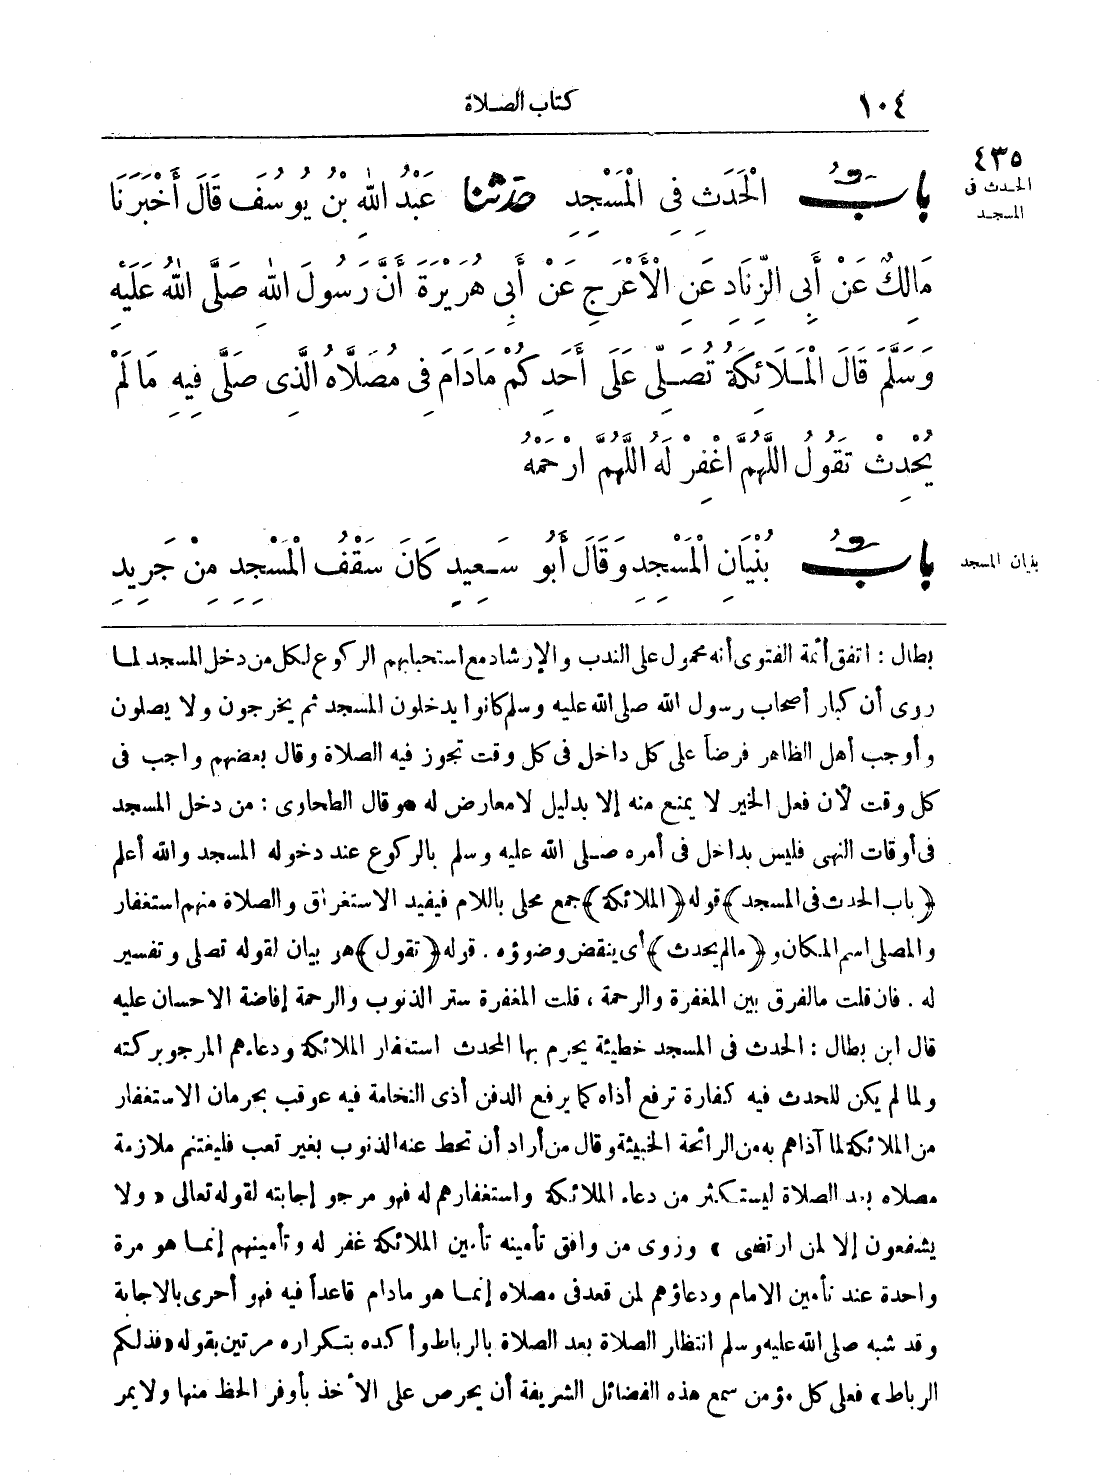 ١٠٤ كتاب الصلاة
٤٣٥
الحدث فى
المسجد
بابُ الْحَدَثِ فِى الْمَسْجِدِ حدثنا عَبْدُ اللهِ بْنُ يُوسُفَ قَالَ أَخْبَرَنَا
مَالِكٌ عَنْ أَبِى الزِّنَادِ عَنِ الْأَعْرَجِ عَنْ أَبِى هُرَيْرَةَ أَنَّ رَسُولَ اللهِ صَلَّى اللهُ عَلَيْهِ
وَسَلَّمَ قَالَ الْمَلَائِكَةُ تُصَلِّى عَلَى أَحَدِكُمْ مَادَامَ فِى مُصَلَّاهُ الَّذِى صَلَّى فِيهِ مَا لَمْ
يُحْدِثْ تَقُولُ اللَّهُمَّ اغْفِرْ لَهُ اللَّهُمَّ ارْحَمْهُ
بنيان المسجد
بابُ بُنْيَانِ الْمَسْجِدِ وَقَالَ أَبُو سَعِيدٍ كَانَ سَقْفُ الْمَسْجِدِ مِنْ جَرِيدِ
بطال : اتفق أئمة الفتوى أنه محمول على الندب والإرشاد مع استحبابهم الركوع لكل من دخل المسجد لما
روى أن كبار أصحاب رسول الله صلى الله عليه وسلم كانوا يدخلون المسجد ثم يخرجون ولا يصلون
وأوجب أهل الظاهر فرضاً على كل داخل فى كل وقت تجوز فيه الصلاة وقال بعضهم واجب فى
كل وقت لأن فعل الخير لا يمنع منه إلا بدليل لا معارض له . وقال الطحاوى : من دخل المسجد
فى أوقات النهى فليس بداخل فى أمره صلى الله عليه وسلم بالركوع عند دخوله المسجد والله أعلم
﴿باب الحدث فى المسجد﴾ قوله ﴿الملائكة﴾ جمع محلى باللام فيفيد الاستغراق والصلاة منهم استغفار
والمصلى اسم المكان و ﴿مالم يحدث﴾ أى ينقض وضوؤه . قوله ﴿تقول﴾ هو بيان لقوله تصلى وتفسير
له . فان قلت مالفرق بين المغفرة والرحمة ، قلت المغفرة ستر الذنوب والرحمة إفاضة الاحسان عليه
قال ابن بطال : الحدث فى المسجد خطيئة يحرم بها المحدث استغفار الملائكة ودعاءهم المرجو بركته
ولما لم يكن للحدث فيه كفارة ترفع أذاه كما يرفع الدفن أذى النخامة فيه عوقب بحرمان الاستغفار
من الملائكة لما آذاهم به من الرائحة الخبيثة وقال من أراد أن تحط عنه الذنوب بغير تعب فليغتنم ملازمة
مصلاه بعد الصلاة ليستكثر من دعاء الملائكة واستغفارهم له فهو مرجو إجابته لقوله تعالى « ولا
يشفعون إلا لمن ارتضى » وزوى من وافق تأمينه تأمين الملائكة غفر له وتأمينهم إنما هو مرة
واحدة عند تأمين الامام ودعاؤهم لمن قعد فى مصلاه إنما هو مادام قاعداً فيه فهو أحرى بالاجابة
وقد شبه صلى الله عليه وسلم انتظار الصلاة بعد الصلاة بالرباط وأكده بتكراره مرتين بقوله «فذلكم
الرباط» فعلى كل مؤمن سمع هذه الفضائل الشريفة أن يحرص على الأخذ بأوفر الحظ منها ولا يمر